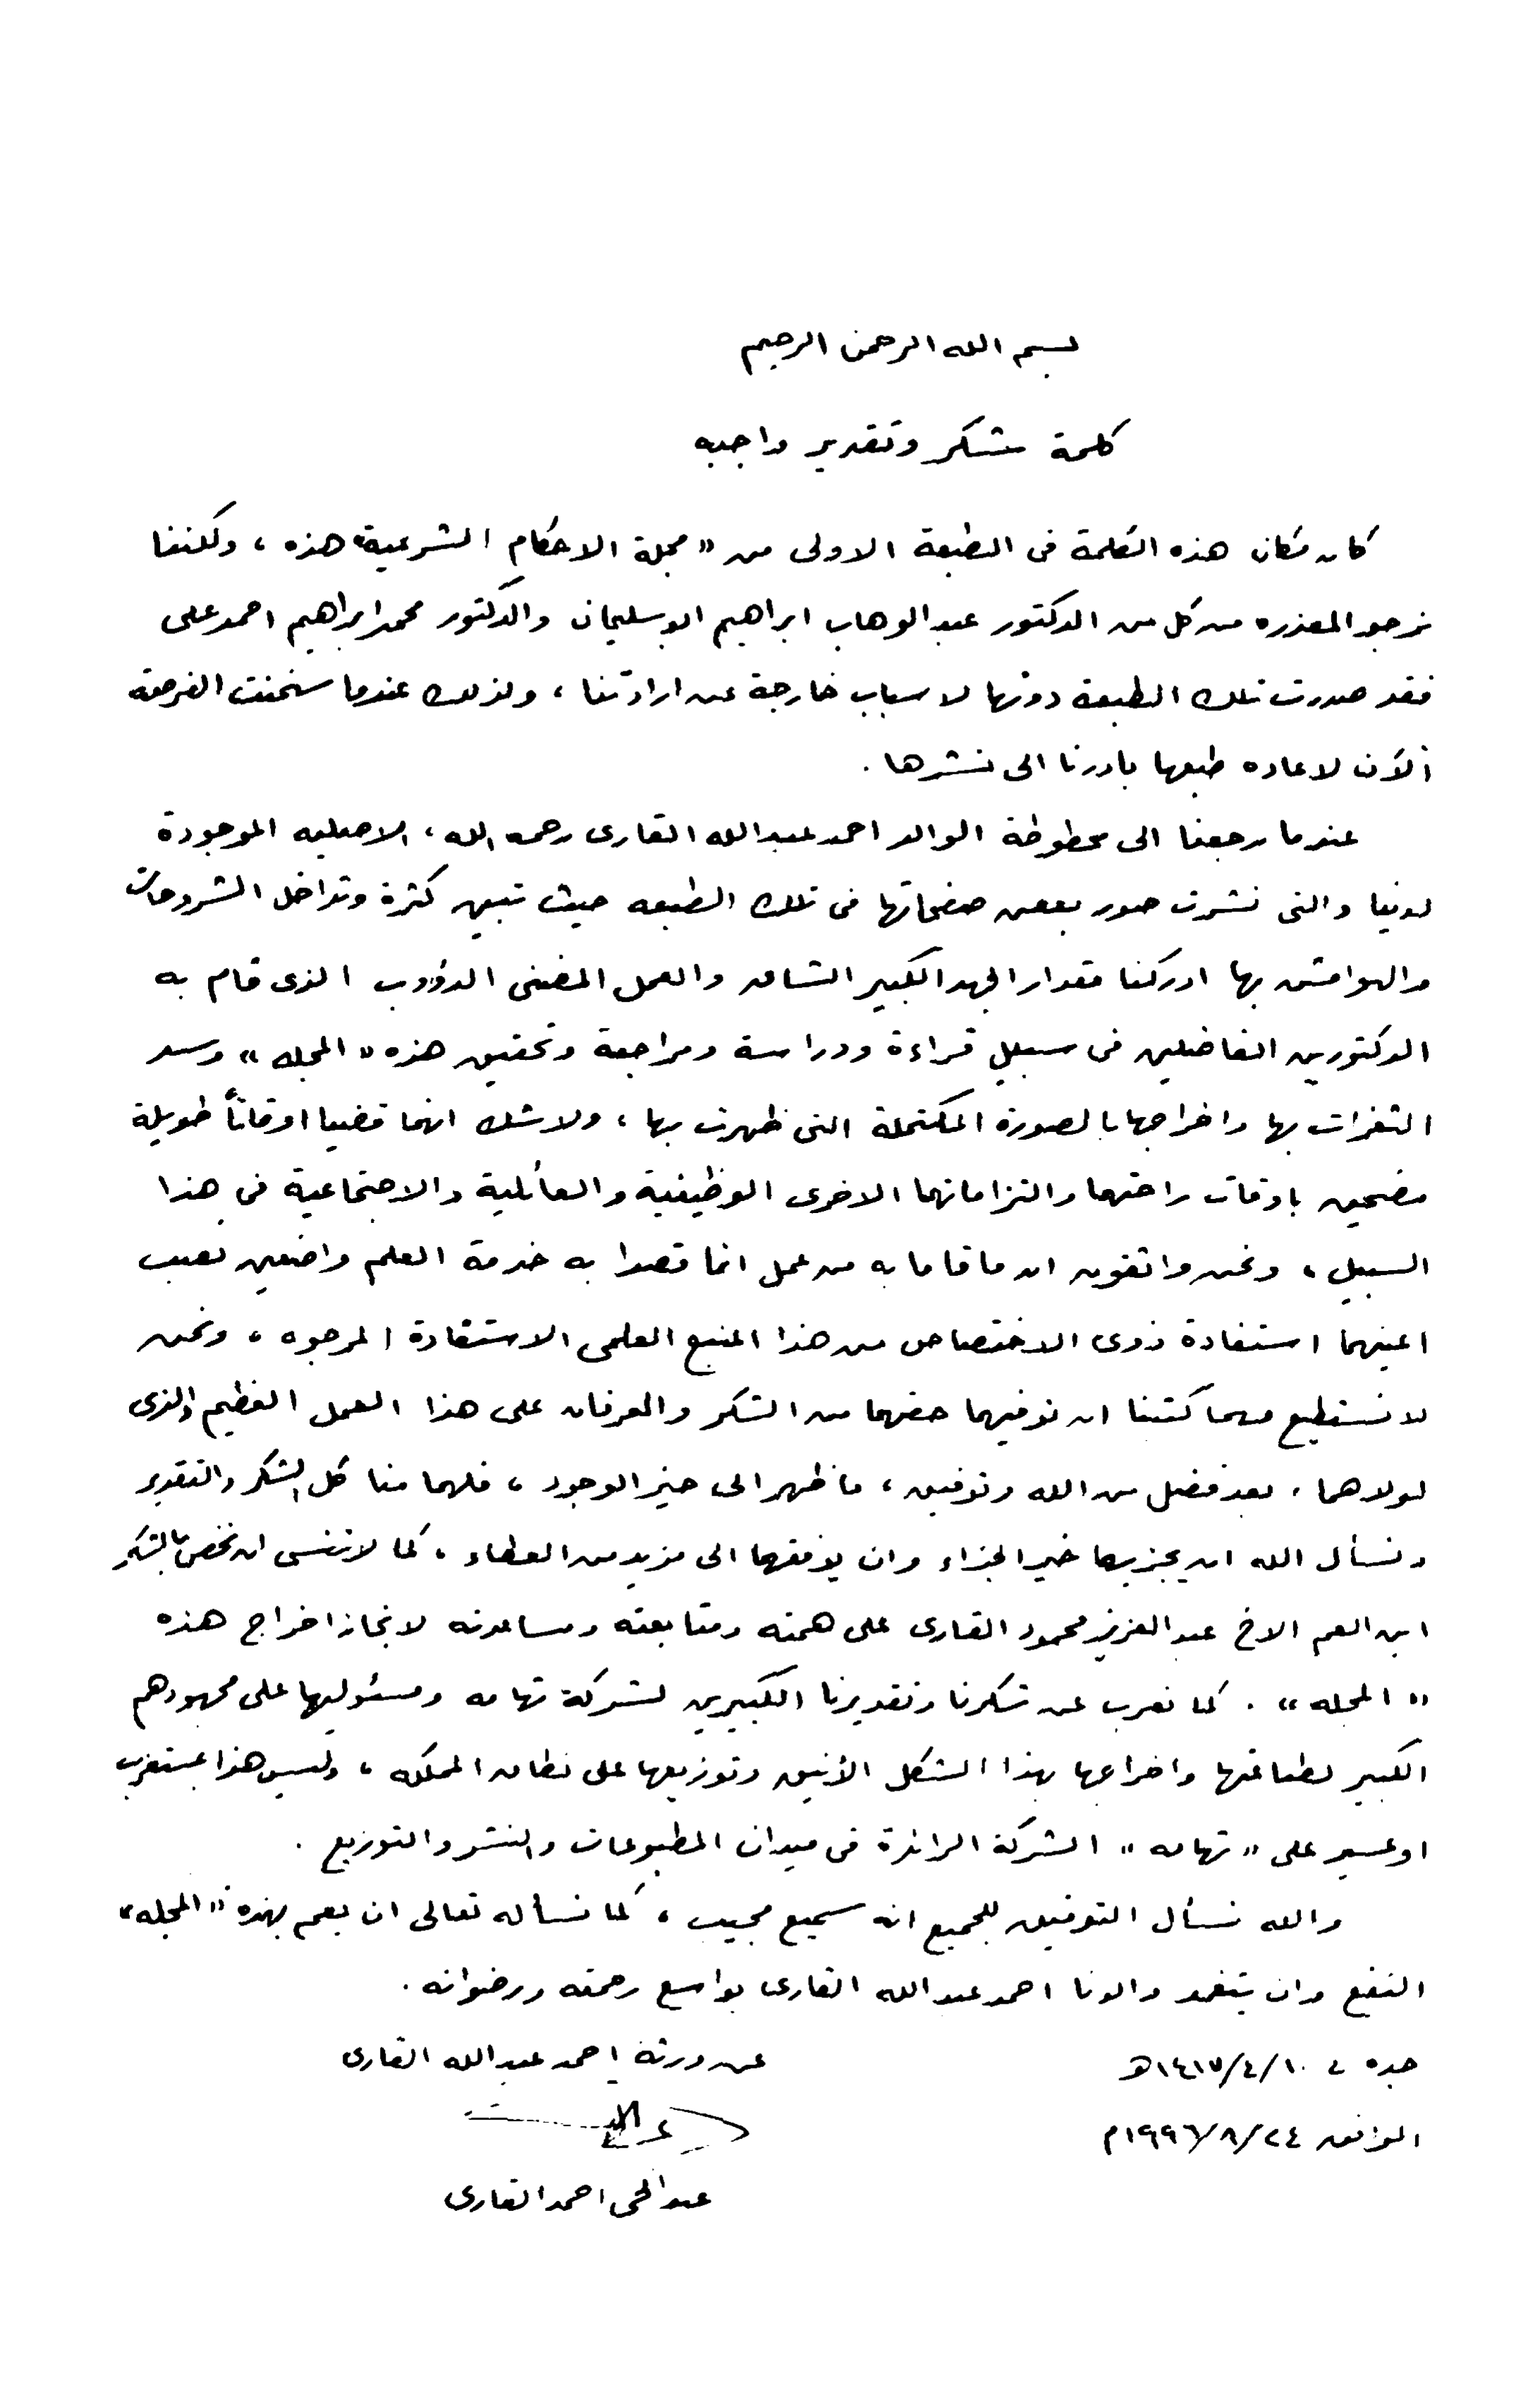 بسم الله الرحمن الرحيم
كلمة شكر وتقدير واجبه
كان مكان هذه الكلمة فى الطبعة الاولى من « مجلة الاحكام الشرعية» هذه ، ولكننا
نرجو المعذره من كل من الدكتور عبد الوهاب ابراهيم ابو سليمان والدكتور محمد ابراهيم احمد على
فقد صدرت تلك الطبعة دونها لاسباب خارجة عن ارادتنا ، ولذلك عندما سنحت الفرصة
الآن لاعاده طبعها بادرنا الى نشرها .
عندما رجعنا الى مخطوطة الوالد احمد عبد الله القارى رحمه الله ، الاصليه الموجودة
لدينا والتى نشرت صور بعض صفحاتها فى تلك الطبعه حيث تبين كثرة وتداخل الشروحات
والهوامش بها ادركنا مقدار الجهد الكبير الشاق والعمل المضنى الدؤوب الذى قام به
الدكتورين الفاضلين فى سبيل قراءة ودراسة ومراجعة وتحقيق هذه « المجله » وسد
الثغرات بها واخراجها بالصورة المكتملة التى ظهرت بها ، ولا شك انهما قضيا اوقاتاً طويلة
مضحين باوقات راحتهما والتزاماتهما الاخرى الوظيفية والعائلية والاجتماعية فى هذا
السبيل ، ونحن واثقون ان ما قاما به من عمل انما قصدا به خدمة العلم واضعين نصب
اعينهما استفادة ذوى الاختصاص من هذا المنبع العلمى الاستفادة المرجوه ، ونحن
لا نستطيع مهما كتبنا ان نوفيهما حقهما من الشكر والعرفان على هذا العمل العظيم والذى
لولاهما ، بعد فضل من الله وتوفيق ، ما ظهر الى حيز الوجود ، فلهما منا كل الشكر والتقدير
ونسأل الله ان يجزيهما خير الجزاء وان يوفقهما الى مزيد من العطاء ، كما لا ننسى ان نخص بالشكر
ابن العم الاخ عبد العزيز محمود القارى على همته ومتابعته ومساعدته لانجاز اخراج هذه
« المجله » . كما نعرب عن شكرنا وتقديرنا الكبيرين لشركة تهامه ومسئوليها على مجهودهم
الكبير لطباعتها واخراجها بهذا الشكل الأنيق وتوزيعها على نطاق المملكه ، وليس هذا بمستغرب
او عسير على « تهامه » الشركة الرائدة فى ميدان المطبوعات والنشر والتوزيع .
والله نسأل التوفيق للجميع انه سميع مجيب ، كما نسأله تعالى ان يعم بهذه « المجله »
النفع وان يتغمد والدنا احمد عبد الله القارى بواسع رحمته ورضوانه .
عن ورثة احمد عبد الله القارى
جده فى ١٤١٧/٤/١٠هـ
الموافق ١٩٩٦/٨/٢٤م
عبد الحى احمد القارى